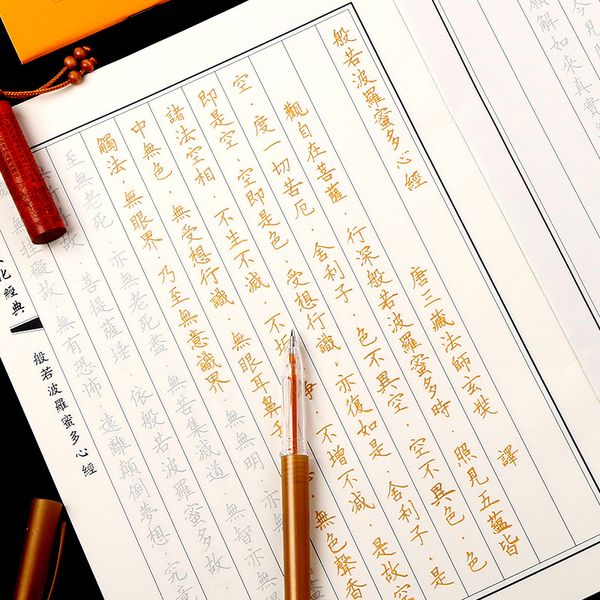 願解如來真實
般若波羅蜜多心經
唐三藏法師玄奘 譯
觀自在菩薩·行深般若波羅蜜多時·照見五蘊皆
空·度一切苦厄·舍利子·色不異空·空不異色·色
即是空·空即是色·受想行識·亦復如是·舍利子·是
諸法空相·不生不滅·不 淨·不增不減·是故空
中無色·無受想行識·無眼耳鼻舌 無色聲香
觸法·無眼界·乃至無意識界·無無明·亦無
至無老死·亦無老死盡·無苦集滅道·無智亦無
菩提薩埵·依般若波羅蜜多故
罣礙故·無有恐怖·遠離顛倒夢想·究竟
化經典
般若波羅蜜多心經